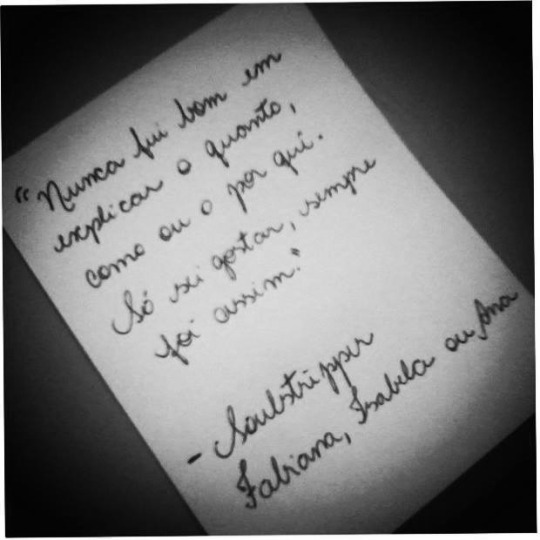 "Nunca fui bom em
explicar o quanto,
como ou o por quê.
Só sei gostar, sempre
foi assim."
- Soulstripper
Fabiana, Isabela ou Ana